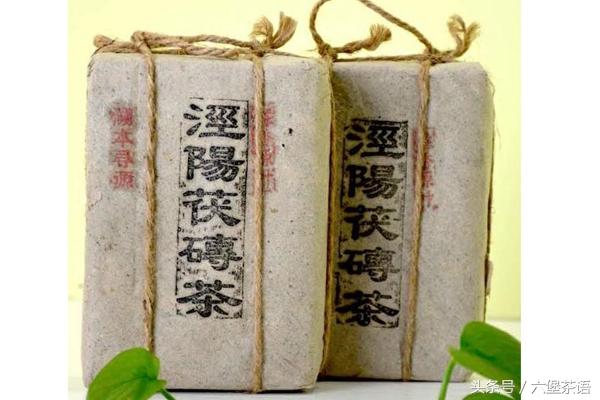 涇陽茯磚茶
涇陽茯磚茶
头条号 / 六堡茶语